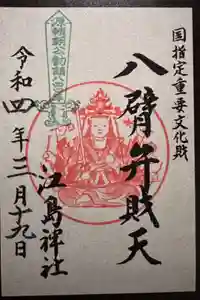 国指定重要文化財
八臂弁財天
源頼朝公勧請八百年
江島神社
令和四年三月十九日